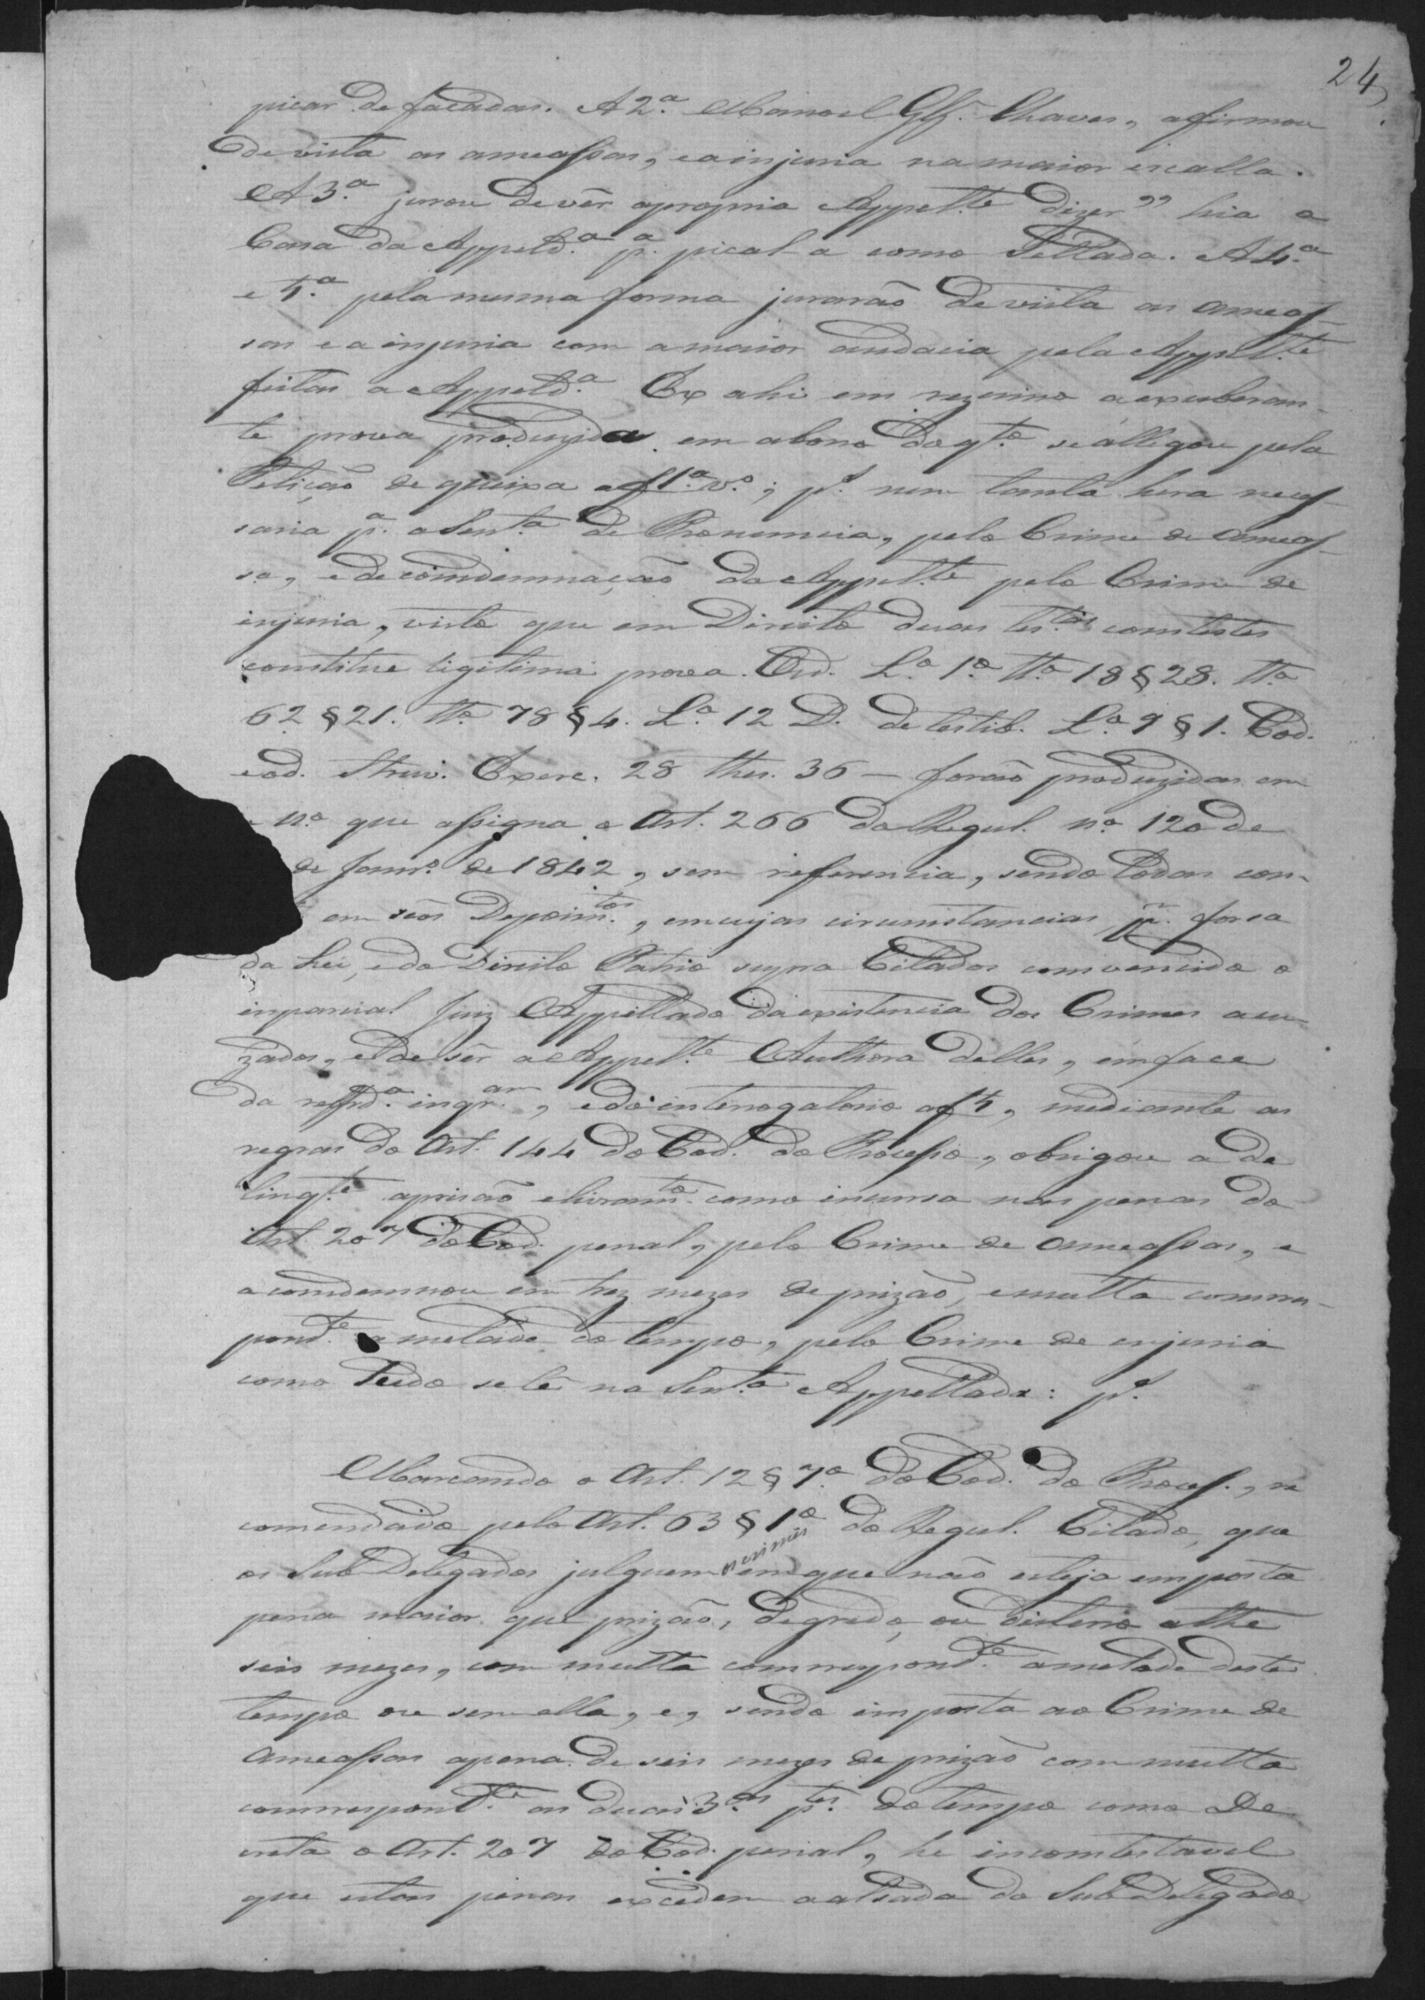 24
picar de facadas. A 2.ª Manoel Glz.' Chaves, afirmou
de vista as ameassas, e a injuria na maior escalla.
A 3.ª jurou de vêr apropria Appel.te dizer" hia a
Casa da Appeld.ª p.ª pical-a como sellada. A 4.ª
e 5.ª pela mesma forma jurarão de vista as ameas-
sas e a injuria com a maior audacia pela Appel.te
feitas a Appeld.ª Ex ahi em rezumo a exuberan-
te prova produzida em abono do q.to se allegou pela
Petição de queixa a f 1.ª v.º; p.s nem tanta hera neces-
saria p.ª a Sent.ª de Pronuncia, pelo Crime de ameas-
sa, e de comdemnação da Appel.te pelo Crime de
injuria, visto que em Direito duas tes.tas contestes
constitue ligitima prova. Ord. L.º 1.º tt.º 18 § 28. tt.º
62 § 21. tt.º 78 § 4. L.ª 12 D. de testib. L.ª 9 § 1. Cod.
eod. Struv. Exerc. 28 thes. 36 — forão produzidas em
n.º que assigna o Art. 266 do Regul. n.º 120 de
de Janr.º de 1842, sem referencia, sendo todas con-
em séos Depoim.tos, em cujas circunstancias, p.r forsa
da Lei, e do Direito Patrio supra Citados comvencido o
inparcial Juiz Appellado da existencia dos Crimes acu-
zados, e de sêr a Appel.te Authora delles, em face
da reffrd.ª inqr.am, e do interrogatorio a f 5, mediante as
regras do Art. 144 do Cod. do Processo, obrigou a de
linq.te aprisão e livram.to como incursa nas penas do
Art. 207 do Cod. penal, pelo Crime de ameassas, e
a comdemnou em trez mezes de prizão, e multa comrres-
pond.te a metade do tempo, pelo Crime de injuria
como tudo se lê na Sent.ª Appellada: p.s
Marcando o Art. 12 § 7.º do Cod. do Process., re
comendado pelo Art. 63 § 1.º do Regul. Citado, que
os Sub Delegados julguem os crimes em que não esteja imposta
pena maior que prizão, degredo, ou disterro athe
seis mezes, com multa comrrespond.te a metade deste
tempo ou sem ella, e, sendo imposta ao Crime de
ameassas apena de seis mezes de prizão com multa
comrrespond.te as duas 3.as p.tes do tempo como De
creta o Art. 207 do Cod. penal, he incontestavel
que estas penas excedem a alsada do Sub Delegado